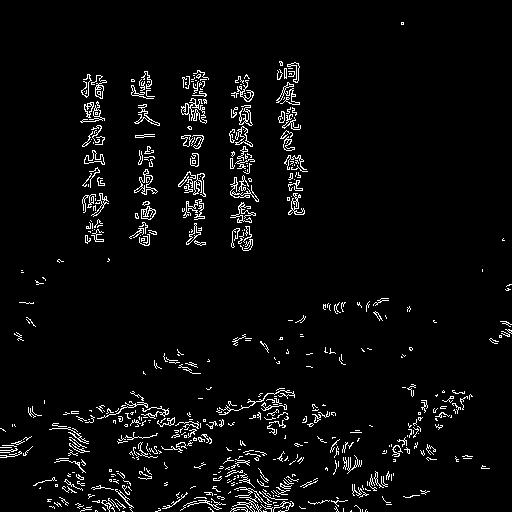 洞庭曉色倣范寬
萬頃波濤撼岳陽
曈曨初日鎖煙光
連天一片東西杳
指點君山在渺茫